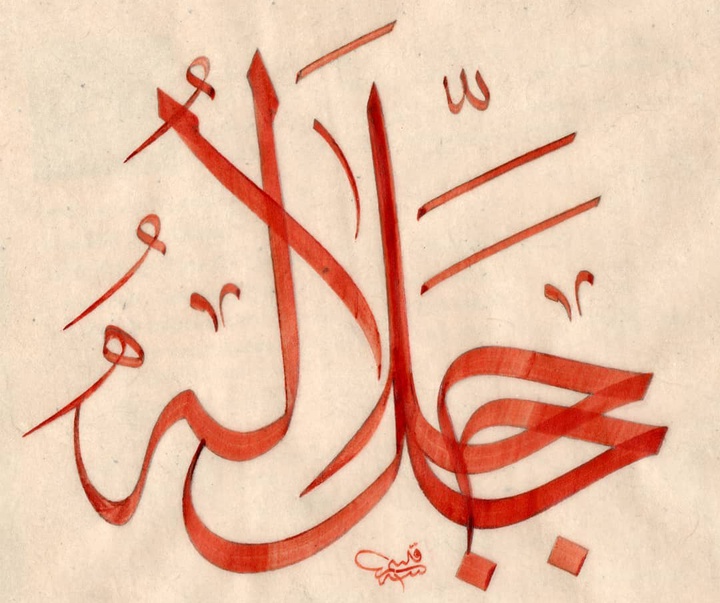 جَلَّ جَلَالُهُ